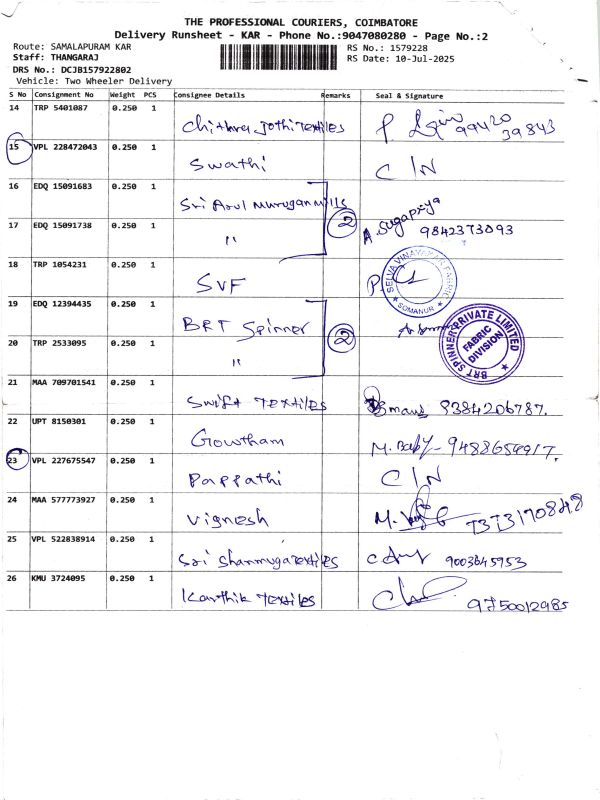 THE PROFESSIONAL COURIERS, COIMBATORE
Delivery Runsheet - KAR - Phone No.:9047080280 - Page No.:2
Route: SAMALAPURAM KAR
RS No.: 1579228
Staff: THANGARAJ
RS Date: 10-Jul-2025
DRS No.: DCJB157922802
Vehicle: Two Wheeler Delivery
S No Consignment No Weight PCS Consignee Details Remarks Seal & Signature
14 TRP 5401087 0.250 1 Chithra Jothi Textiles P 99420 39843
15 VPL 228472043 0.250 1 Swathi C/N
16 EDQ 15091683 0.250 1 Sri Arul Murugan Mills
17 EDQ 15091738 0.250 1 " 2 A Sugapriya 9842373093
18 TRP 1054231 0.250 1 SVF SELVA VINAYAKAR FABRIC SOMANUR
19 EDQ 12394435 0.250 1 BRT Spinner
20 TRP 2533095 0.250 1 " 2 BRT SPINNERS PRIVATE LIMITED FABRIC DIVISION
21 MAA 709701541 0.250 1 Swift Textiles 9384206787.
22 UPT 8150301 0.250 1 Gowtham M. Baby - 9488659917.
23 VPL 227675547 0.250 1 Pappathi C/N
24 MAA 577773927 0.250 1 Vignesh M.
25 VPL 522838914 0.250 1 Sri Shanmuga Textiles 9003645953
26 KMU 3724095 0.250 1 Karthik Textiles 9750012985